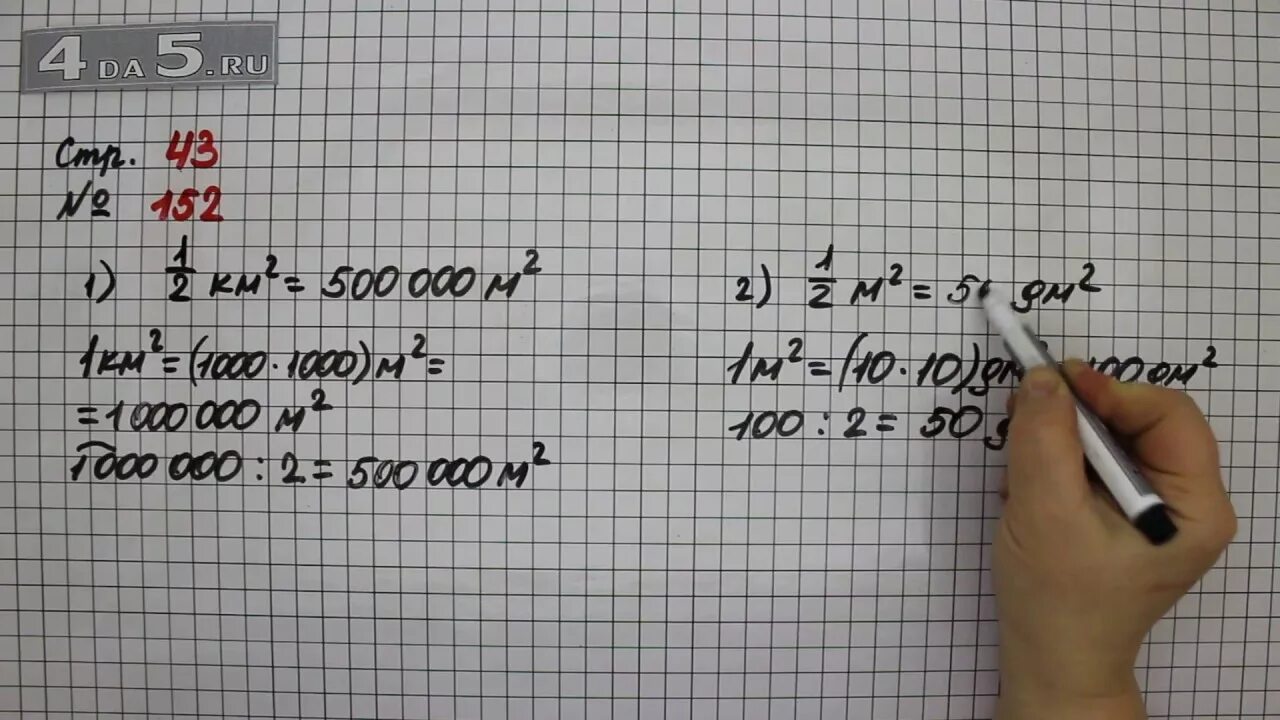 4DA5.RU
Стр. 43
№ 152
1) 1/2 км² = 500 000 м²
1 км² = (1000 · 1000) м² =
= 1 000 000 м²
1 000 000 : 2 = 500 000 м²
2) 1/2 м² = 50 дм²
1 м² = (10 · 10) дм² 100 дм²
100 : 2 = 50